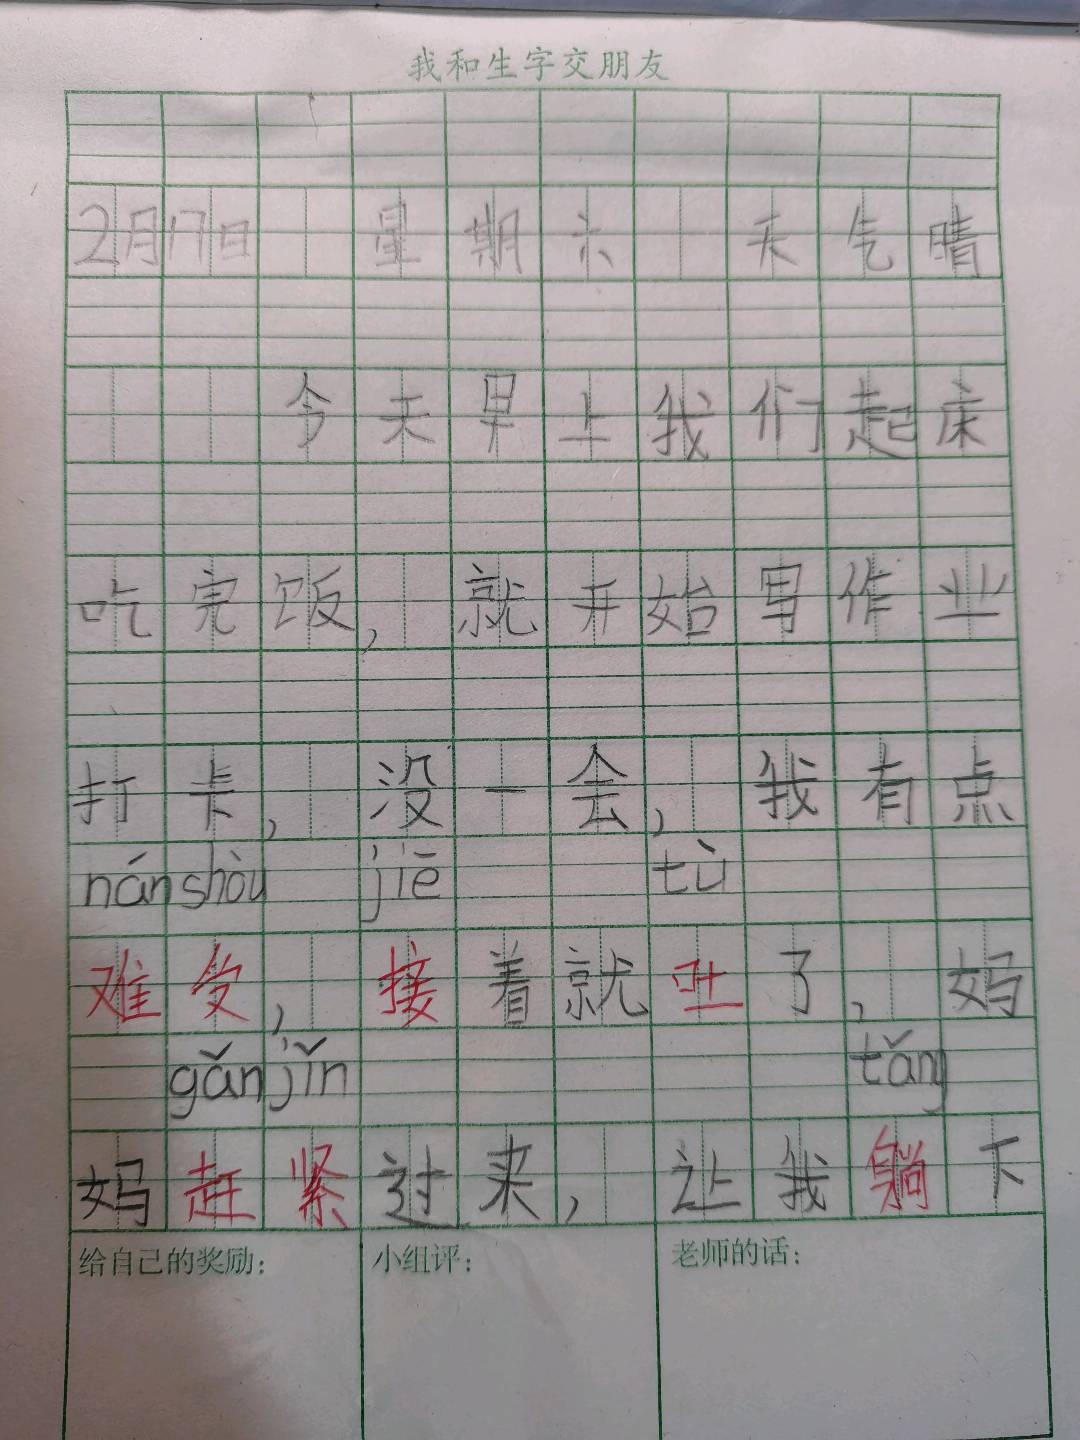 我和生字交朋友
2月17日 星期六 天气晴
今天早上我们起床
吃完饭，就开始写作业
打卡，没一会，我有点
nán shòu jiē tù
难受，接着就吐了，妈
gǎn jǐn tǎng
妈赶紧过来，让我躺下
给自己的奖励： 小组评： 老师的话：